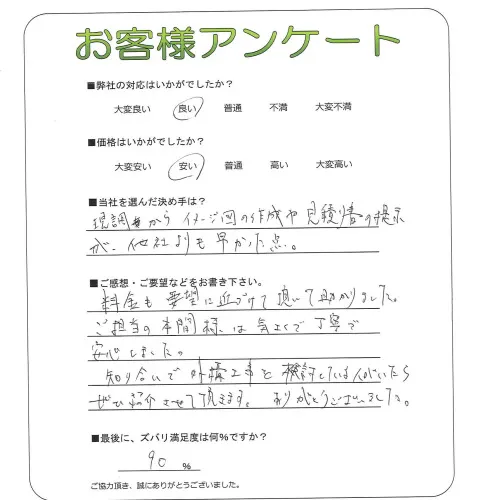 お客様アンケート
■弊社の対応はいかがでしたか？
大変良い 良い 普通 不満 大変不満
■価格はいかがでしたか？
大変安い 安い 普通 高い 大変高い
■当社を選んだ決め手は？
現調から イメージ図の作成や 見積書の提示
が、他社よりも早かった点。
■ご感想・ご要望などをお書き下さい。
料金も要望に近づけて頂いて助かりました。
ご担当の本間様は気さくで丁寧で
安心しました。
知り合いで外構工事を検討している人がいたら
ぜひ紹介させて頂きます。ありがとうございました。
■最後に、ズバリ満足度は何％ですか？
90 ％
ご協力頂き、誠にありがとうございました。